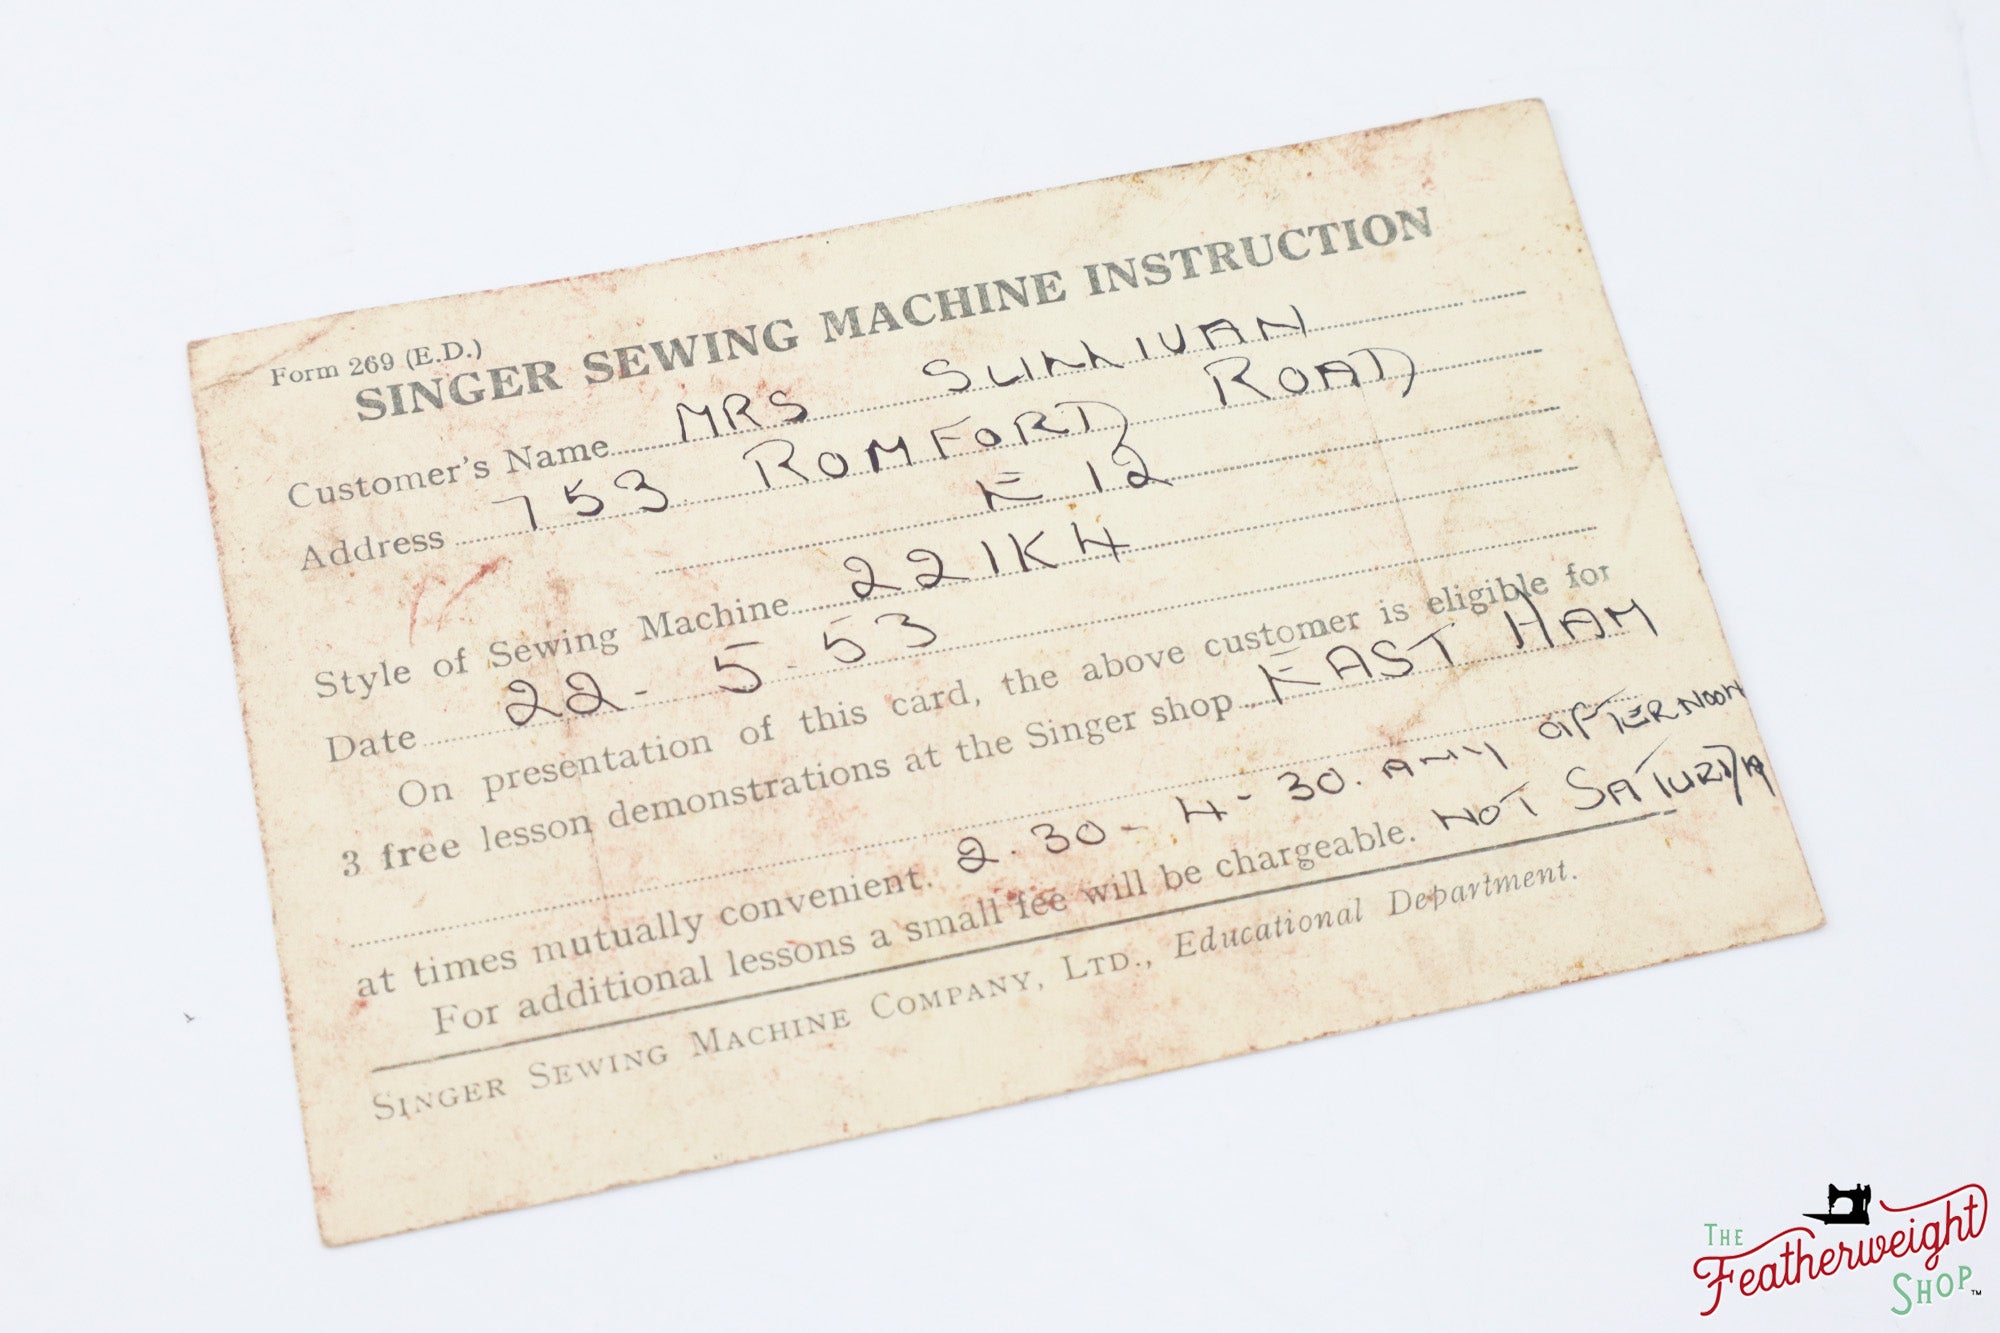 Form 269 (E.D.)
SINGER SEWING MACHINE INSTRUCTION
Customer's Name MRS SULLIVAN
Address 753 ROMFORD ROAD
E 12
Style of Sewing Machine 221K4
Date 22-5-53
On presentation of this card, the above customer is eligible for
3 free lesson demonstrations at the Singer shop EAST HAM
at times mutually convenient. 2.30-4-30. ANY AFTERNOON
For additional lessons a small fee will be chargeable. NOT SATURDA
SINGER SEWING MACHINE COMPANY, LTD., Educational Department.
THE
Featherweight
SHOP™